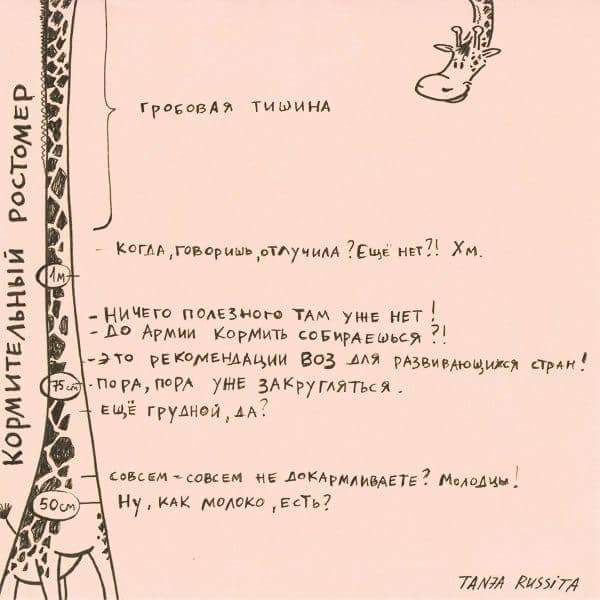 Кормительный ростомер
гробовая тишина
- Когда, говоришь, отлучила? Ещё нет?! Хм.
1м
- Ничего полезного там уже нет!
- До Армии кормить собираешься?!
- это рекомендации ВОЗ для развивающихся стран!
75 см
- пора, пора уже закругляться.
- ещё грудной, да?
- совсем-совсем не докармливаете? Молодцы!
50см
- Ну, как молоко, есть?
TANJA RUSSITA